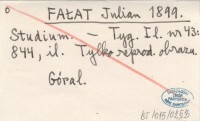 FAŁAT Julian 1899.
Studium. — Tyg. Il. nr 43:
844, il. Tylko reprod. obrazu
Góral.